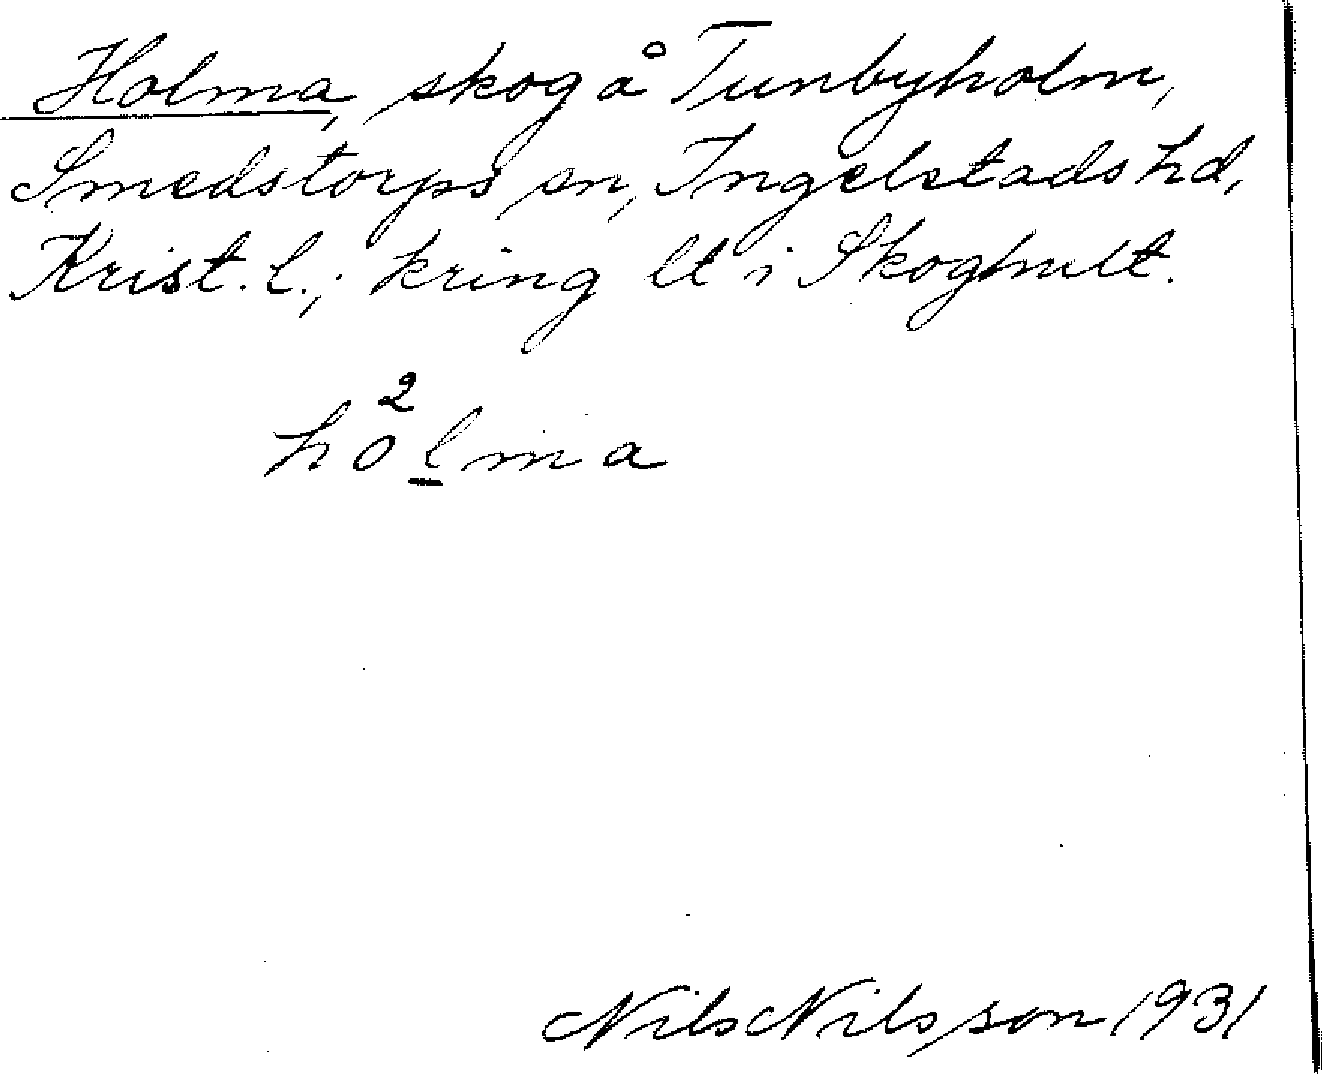 Holma, skog å Tunbyholm,
Smedstorps sn, Ingelstads hd,
Krist. l.; kring lt i Skoghult.
2
holma
Nils Nilsson 1931